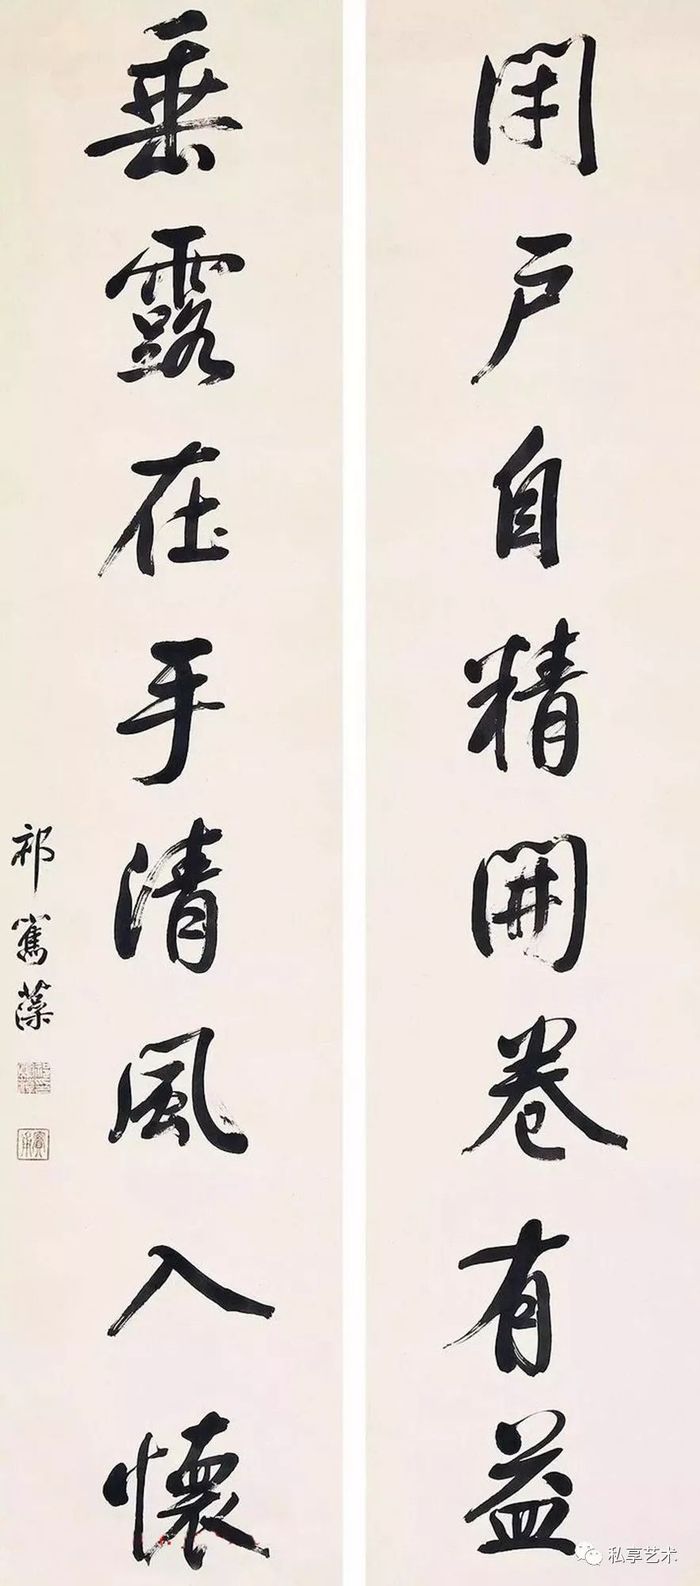 閉戶自精開卷有益
垂露在手清風入懷
祁寯藻
私享艺术